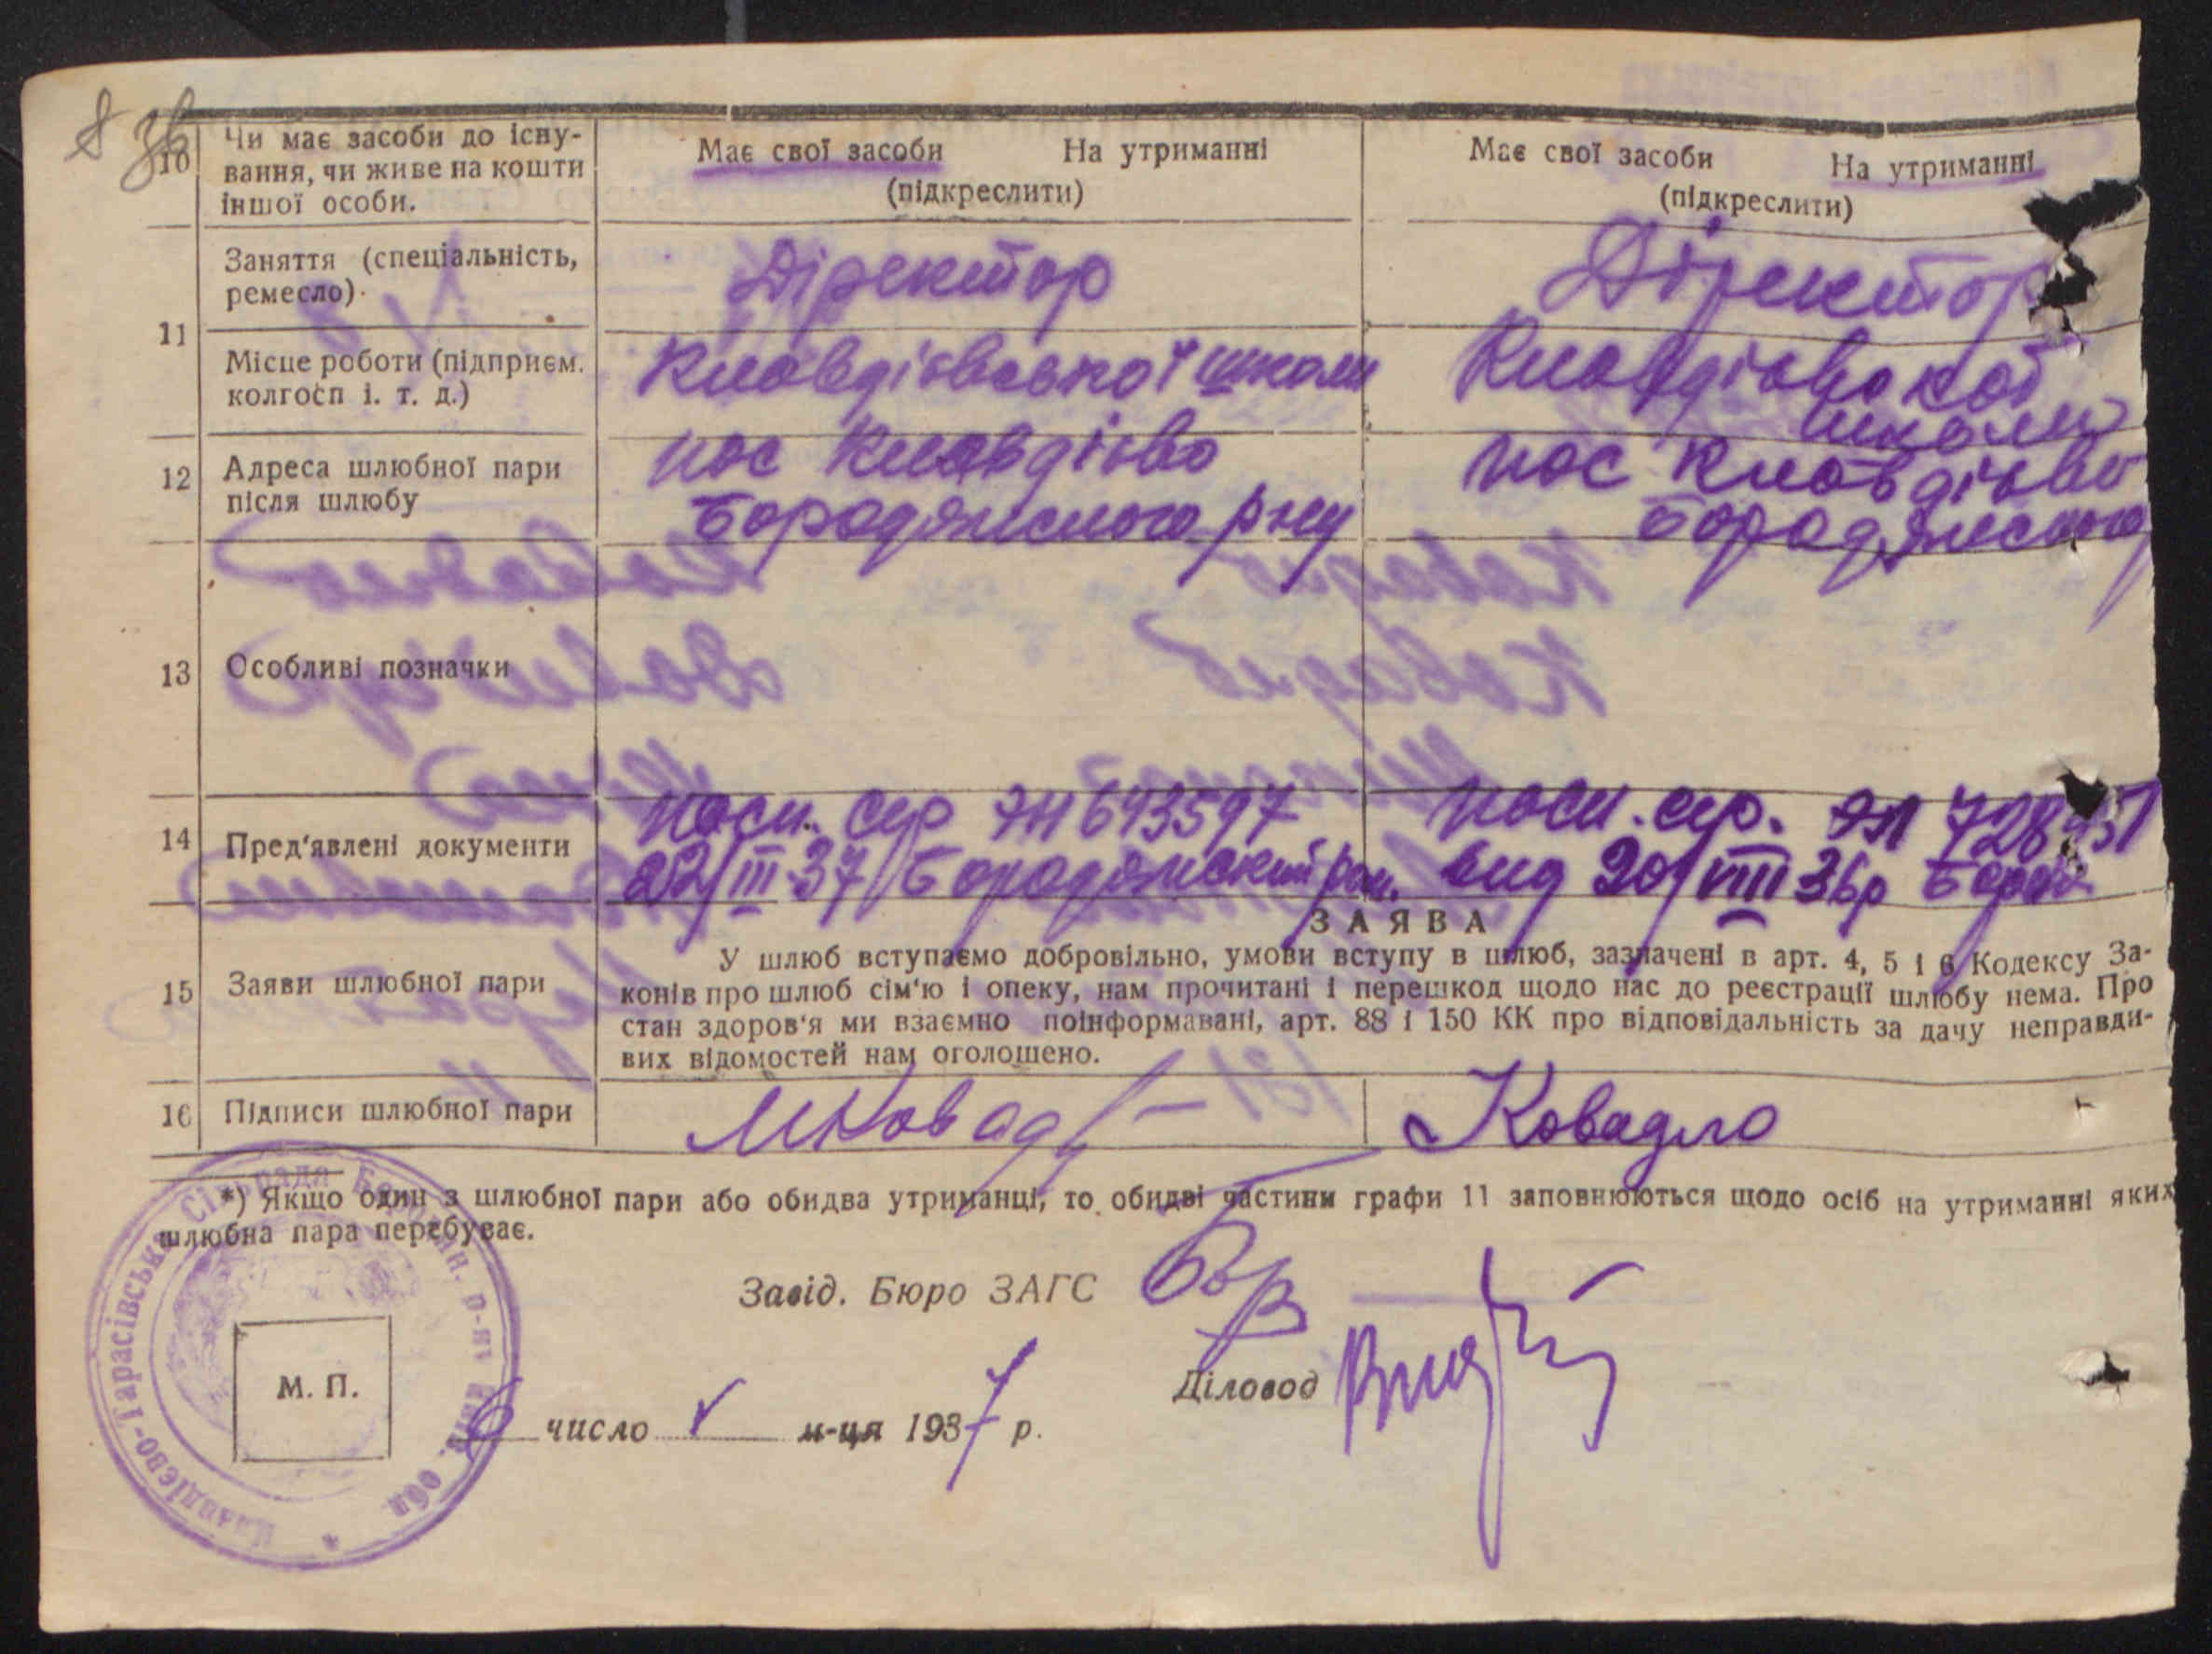 8 36
10 Чи має засоби до існу-
вання, чи живе на кошти
іншої особи.
Має свої засоби На утриманні
(підкреслити)
Має свої засоби На утриманні
(підкреслити)
11
Заняття (спеціальність,
ремесло).
Діректор
Діректор
Місце роботи (підприєм.
колгосп і. т. д.)
Клавдієвської школи
Клавдієвскої
школи
12 Адреса шлюбної пари
після шлюбу
пос Клавдієво
Бородянского рну
пос Клавдієво
Бородянского
13 Особливі позначки
14 Пред'явлені документи
посп. сер ЭН 643597
22/III-37 Бородянский рай.
посп. сер. ЭЛ
вид 20/VIII 36р Бород
15 Заяви шлюбної пари
ЗАЯВА
У шлюб вступаємо добровільно, умови вступу в шлюб, зазначені в арт. 4, 5 і 6 Кодексу За-
конів про шлюб сім'ю і опеку, нам прочитані і перешкод щодо нас до реєстрації шлюбу нема. Про
стан здоров'я ми взаємно поінформавані, арт. 88 і 150 КК про відповідальність за дачу неправди-
вих відомостей нам оголошено.
16 Підписи шлюбної пари
МКовад
Ковадло
*) Якщо один з шлюбної пари або обидва утриманці, то обидві частини графи 11 заповнюються щодо осіб на утриманні яких
шлюбна пара перебуває.
Завід. Бюро ЗАГС
Діловод
М. П.
6 число V м-ця 1937 р.
Клавдієво-Тарасівська Сільрада Бородян. р-ну Київ. обл.